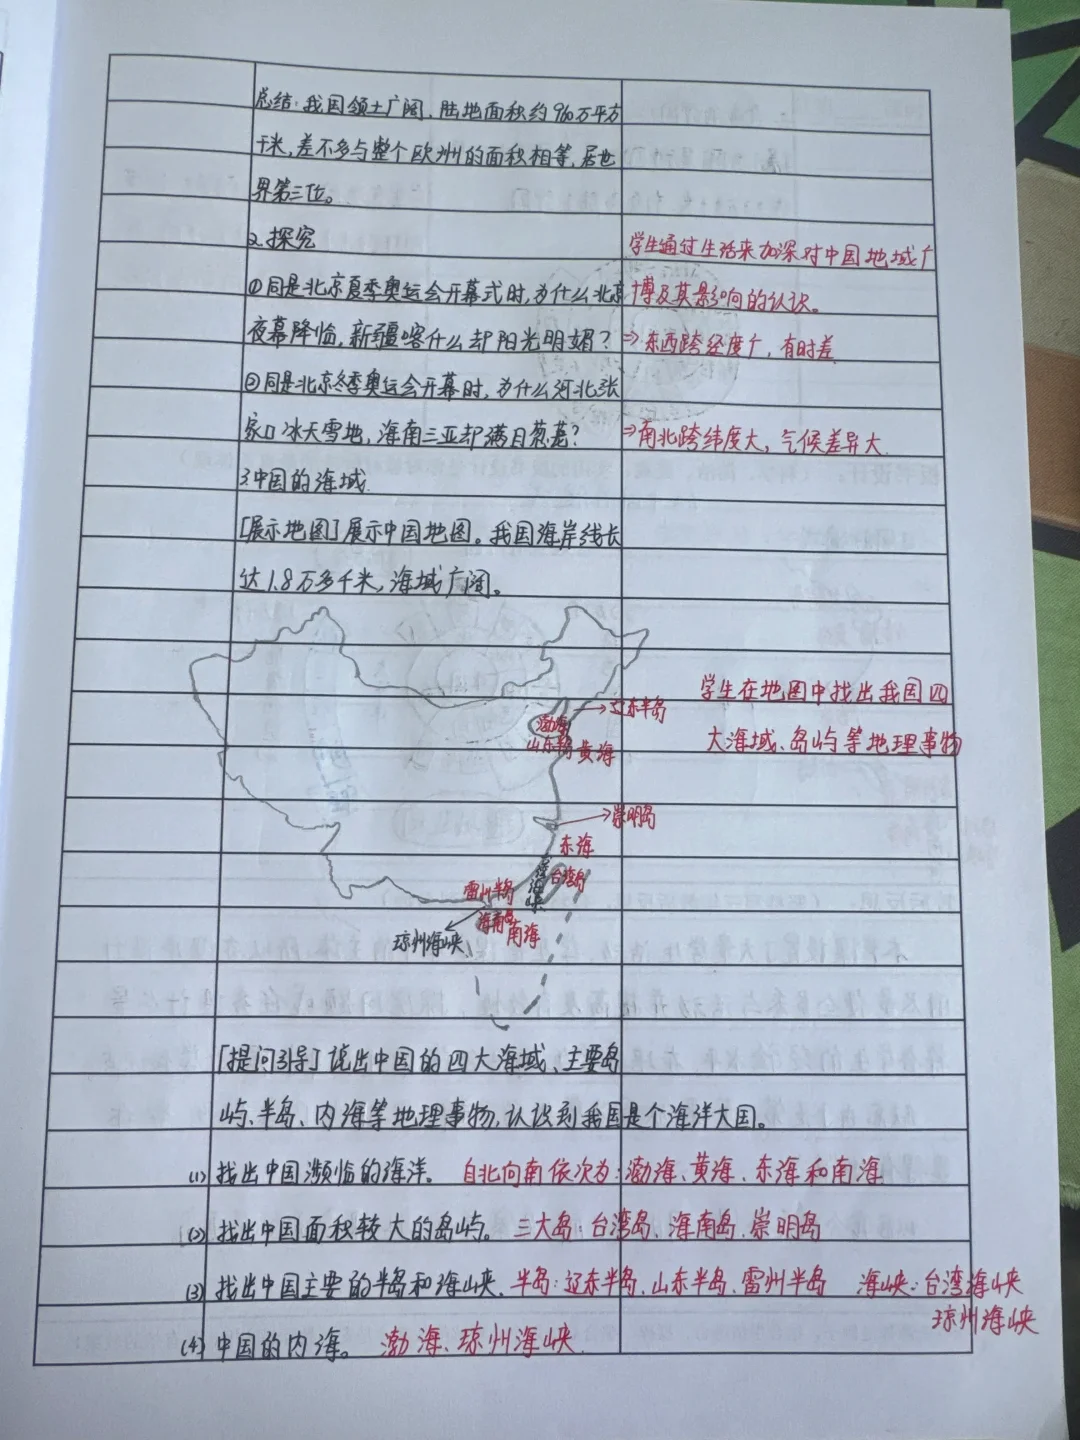 总结：我国领土广阔，陆地面积约960万平方
千米，差不多与整个欧洲的面积相等，居世
界第三位。
2.探究
学生通过生活来加深对中国地域广
①同是北京夏季奥运会开幕式时，为什么北京
博及其影响的认识。
夜幕降临，新疆喀什么却阳光明媚？
⇒东西跨经度广，有时差
②同是北京冬季奥运会开幕时，为什么河北张
家口冰天雪地，海南三亚却满目葱茏？
⇒南北跨纬度大，气候差异大.
3.中国的海域.
[展示地图]展示中国地图。我国海岸线长
达1.8万多千米，海域广阔。
学生在地图中找出我国四
大海域、岛屿等地理事物
辽东半岛
渤海
山东半岛
黄海
崇明岛
东海
台湾海峡
台湾岛
雷州半岛
海南岛
南海
琼州海峡
[提问引导]说出中国的四大海域、主要岛
屿、半岛、内海等地理事物，认识到我国是个海洋大国。
(1)找出中国濒临的海洋。 自北向南依次为：渤海、黄海、东海和南海
(2)找出中国面积较大的岛屿。 三大岛：台湾岛、海南岛、崇明岛
(3)找出中国主要的半岛和海峡. 半岛：辽东半岛、山东半岛、雷州半岛 海峡：台湾海峡
琼州海峡
(4)中国的内海。 渤海、琼州海峡.